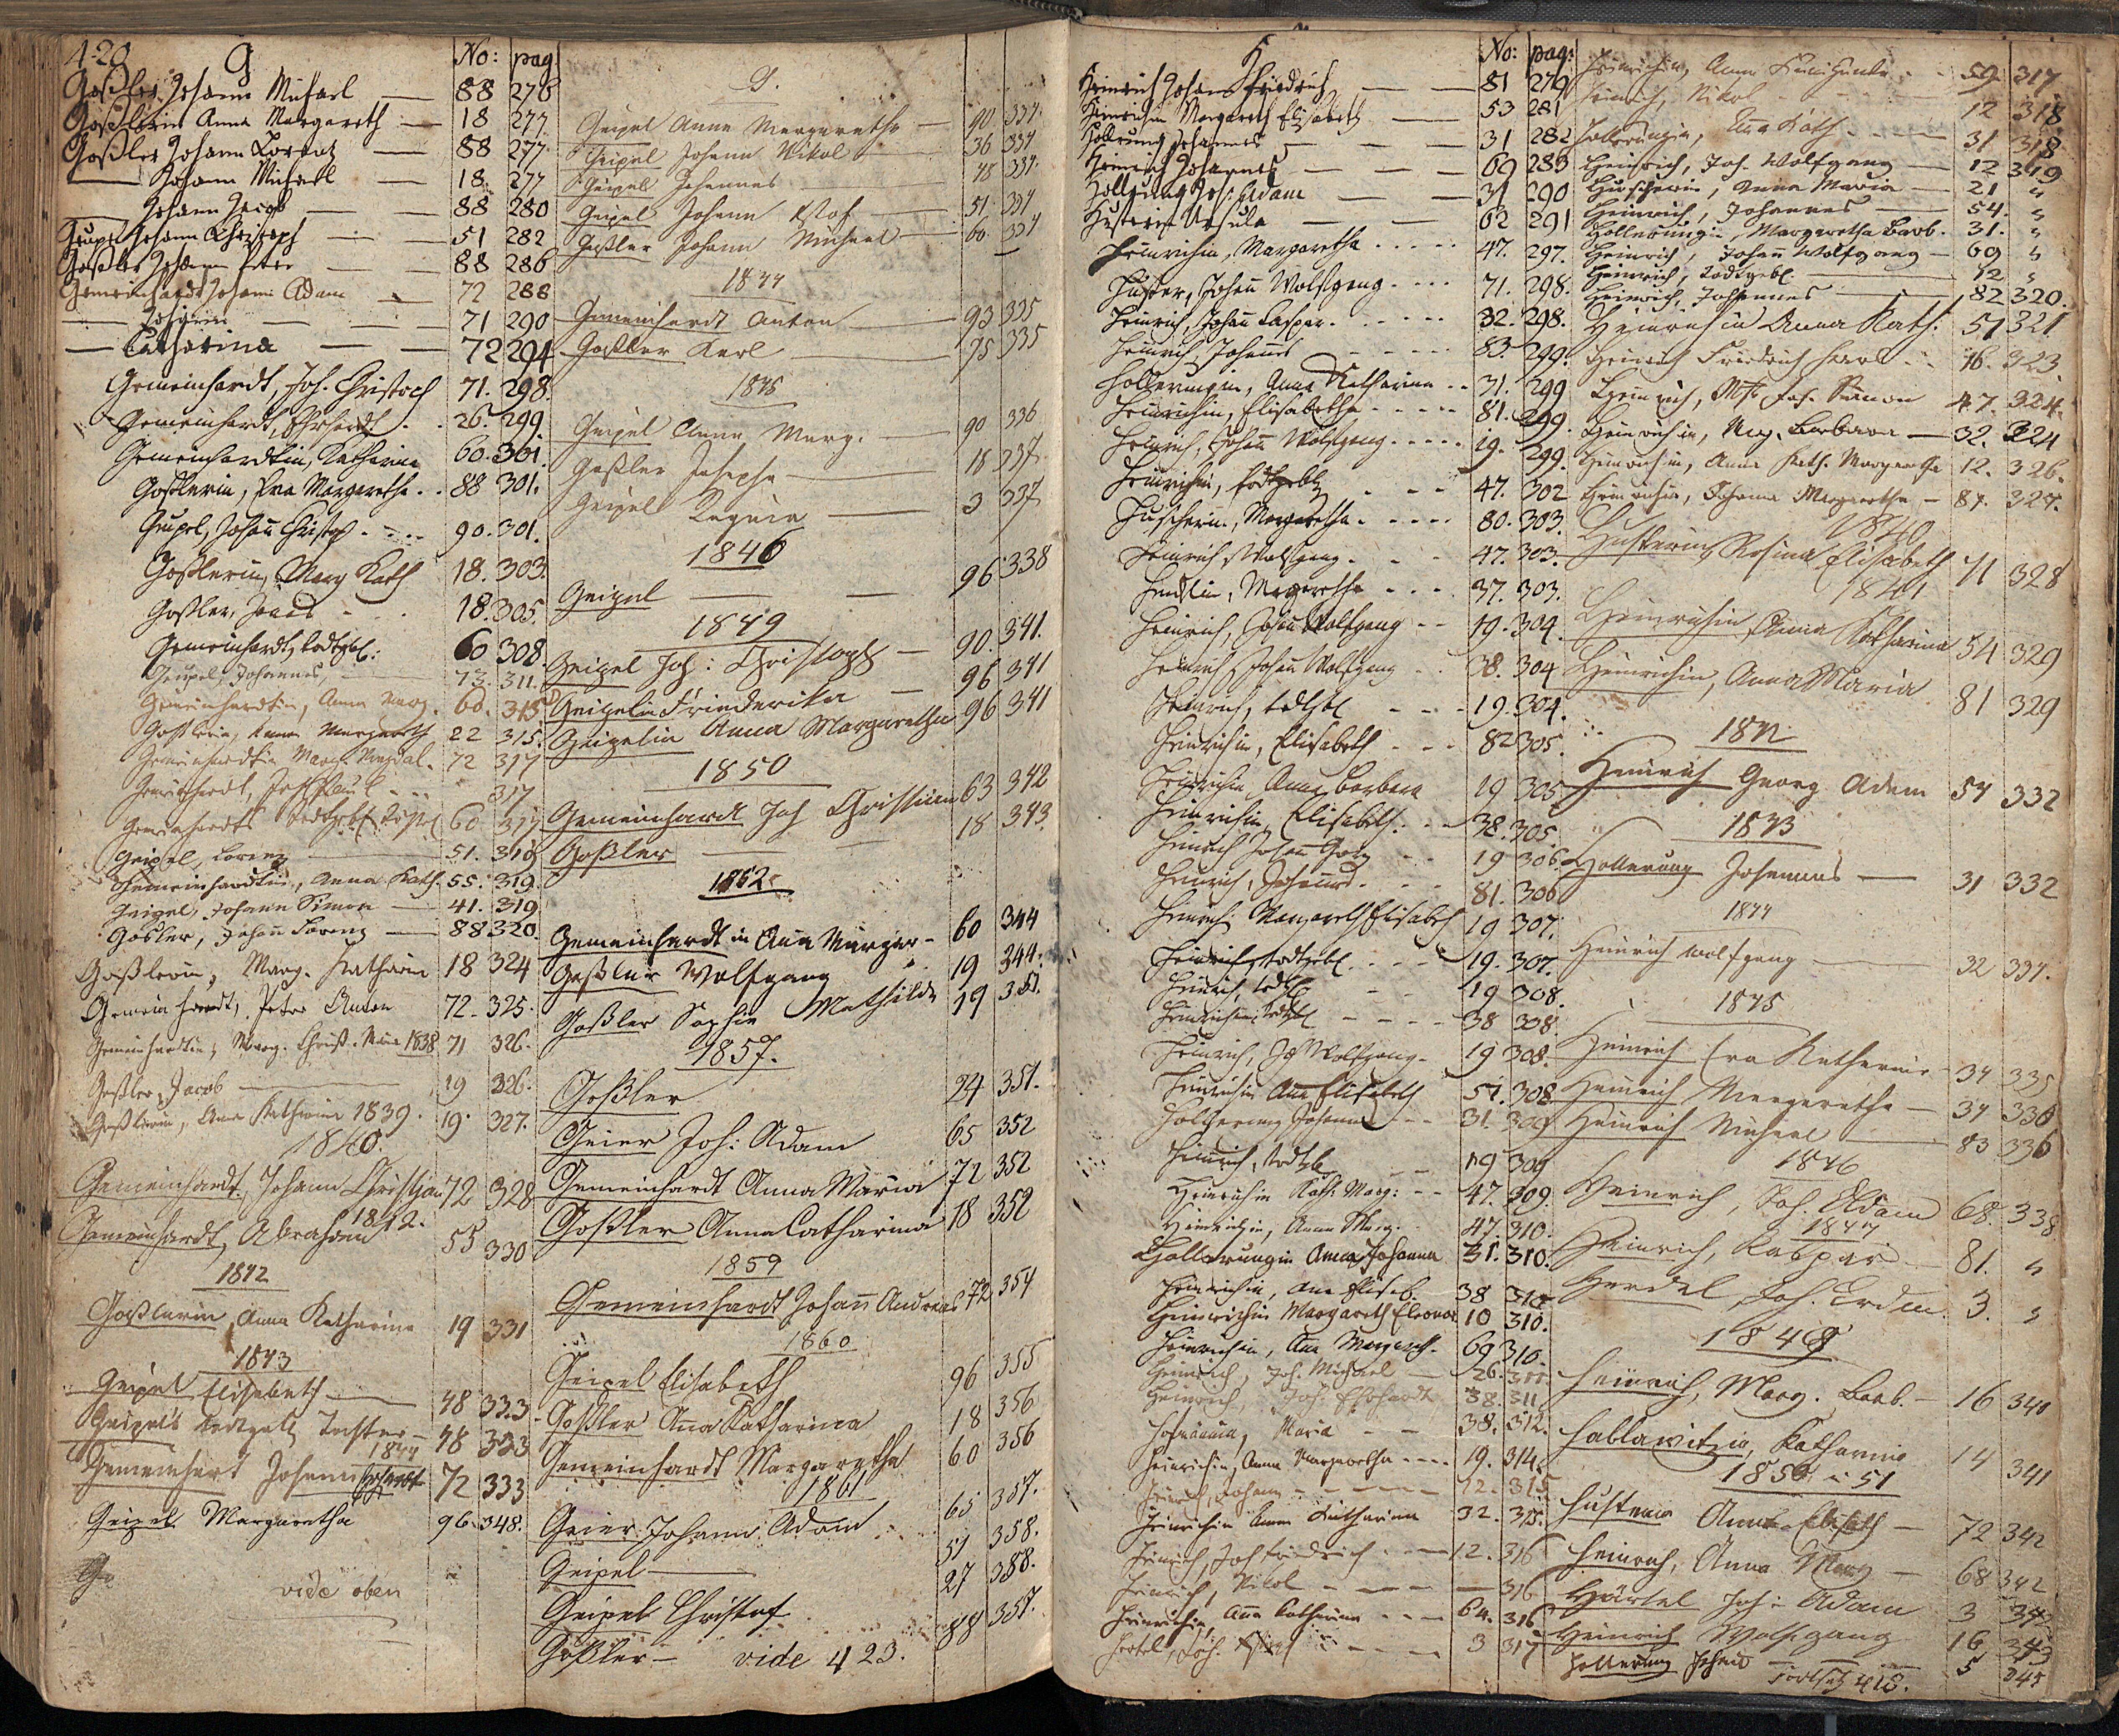 420 G No: pag:
Goßler Johann Michael — 88 276
Goßlerin Anna Margareth — 18 277
Goßler Johann Lorentz — 88 277
— Johann Michael — 18. 277
— Johann Jacob — 88 280
Geupel Johann Christoph — 51 282
Goßler Johann Peter — 88 286
Gemeinhardt Johann Adam — 72 288
— — — 71 290
— Catharina — 72 294
Gemeinhardt, Joh. Christoph 71. 298.
Gemeinhardt, Erhardt . . 26. 299.
Gemeinhardtin, Katharina 60. 301.
Goßlerin, Eva Margaretha . . 88 301.
Geupel, Johañ Christoph . . . 90. 301.
Goßlerin, Marg Kath 18. 303.
Goßler, 18. 305.
Gemeinhardt, todtgeb: 60 308.
Geupel, Johannes, 73. 311.
Gemeinhardtin, Anna Marg. 60. 315
Goßlerin, Anna Margareth 22 315.
Gemeinhardtin Marg. Magdal. 72 317
Gemeinhardt, Joh Paul . . . 317
Gemeinhardts todtgeb. 60 317
Geipel, Lorenz — 51. 318
Gemeinhardtin, Anna Kath. 55. 319.
Geipel, Johann Simon — 41. 319
Gosler, Johañ Lorenz — 88 320.
Goßlerin, Marg. Katharin 18 324
Gemeinhardt, Peter Anton 72. 325.
Gemeinhardtin, Marg. Christ. 1838 71 326.
Goßler, Jacob — 19 326.
Goßlerin, Ana Katharina 1839. 19. 327.
1840.
Gemeinhardt, Johann Christian 72 328
1842.
Gemeinhardt, Abraham 55 330
1842
Goßlerin Anna Katharina 19 331
1843
Geipel Elisabeth — 48 333.
Geipel's todtgeb. Tochter — 48 333
1844
Gemeinhart Johann 72 333
Geipel Margaretha 96. 348.
vide oben
G.
Geipel Anna Margaretha — 90 334.
Geipel Johann Nikol — 36 334
Geipel Johannes — 48 334.
Geipel Johann — 51 334
Goßler Johann Michael — 60 334
1844
Gemeinhardt Anton — 93 335
Goßler Karl — 75 335
1845
Geipel Anna Marg. — 90 336
Goßler Josepha — 18 337.
Geipel Regina — 3 337
1846
Geipel — 96 338
1849
Geipel Joh: Christoph — 90. 341.
Geipelin Friederika — 96 341
Geipelin Anna Margaretha 96 341
1850
Gemeinhardt Joh Christian 63 342
Goßler — 18 343.
1852
Gemeinhardtin Aña Margar — 60 344
Goßler Wolfgang 19 344.
Goßler Sophie Mathilde 19 351.
1857.
Goßler 24 351.
Geier Joh: Adam 65 352
Gemeinhardt Anna Maria 72 352
Goßler Anna Catharina 18 352
1859
Gemeinhardt Johañ Andreas 72 354
1860
Geipel Elisabeth 96 355
Goßler Aña Katharina 18 356
Gemeinhardt Margaretha 60 356
1861
Geier Johann Adam 65 357.
Geipel — 51 358.
Geipel Christof 27 358.
Goßler — vide 423. 88 357.
H No: pag:
Heinrich Johann Friedrich — 81 279
Heinrichin Margareth Elisabeth — 53 281
Hollerung Johannes — 31 282
Heinrich Johannes — 69 283
Hollerung Joh: Adam — 31 290
Husterin Ursula — 62 291
Heinrichin, Margaretha . . . . 47. 297.
Huster, Johañ Wolfgang . . . . 71. 298.
Heinrich, Johañ Caspar . . . . 32. 298.
Heinrich, Johannes . . . . 83. 299.
Hollerungin, Anna Katharina . . 31. 299
Heinrichin, Elisabetha . . . . 81. 299.
Heinrich, Johañ Wolfgang . . . . 19. 299.
Heinrichin, todtgeb. . . . 47. 302
Margaretha . . . . 80. 303.
Heinrich, Wolfgang . . 47. 303.
Margaretha . . . 37. 303.
Heinrich, Johañ Wolfgang . . 19. 304.
Heinrich, Johañ Wolfgang . . 38. 304
Heinrich, todtgeb. . . . 19. 304.
Heinrichin, Elisabeth . . . 82 305.
Heinrichin, Anna Barbara 19 305
Heinrichin, Elisabeth . . 38. 305.
Heinrich Johañ Georg . . 19 306.
Heinrich, Johannes . . . 81. 306
Heinrich Margareth Elisabeth 19 307.
Heinrich, todtgeb. . . . 19. 307.
Heinrich, todtg. . . 19 308.
Heinrichin, todtgeb. . . . 38 308
Heinrich, Joh Wolfgang . 19 308.
Heinrichin Aña Elisabeth 57. 308
Hollerung Johannes . . 31. 309
Heinrich, todtgeb. . . 19 309
Heinrichin Kath: Marg: . . 47. 309.
Heinrichin, Anna Marg. . 47. 310.
Hollerungin Anna Johanna 31. 310.
Heinrichin, Ana Elisab. 38 310
Heinrichin Margareth Eleonor 10 310.
Heinrichin, Ana Margareth. 69 310.
Heinrich, Joh. Michael — 26. 311
Heinrich, Joh. Erhardt 38. 311.
Hofmännin, Maria — 38. 312.
Heinrichin, Anna Margaretha . . . . 19. 314.
Heinrich, Johann . . . . 12. 315
Heinrichin Anna Katharina 32. 315.
Heinrich, Joh Friedrich . . — 12. 316
Heinrich, Nikol . . . — 316
Heinrichin, Aña Katharina . . . 64. 316
Hertel, Joh. 3 317
Heinrichin, Anna Kunigunda . . 59. 317.
Heinrich, Nikol 12 318
Hollerungin, Aña Kath. . . . 31 318
Heinrich, Joh. Wolfgang — 12 319
Anna Maria — 21 "
Heinrich, Johannes — 54. "
Hollerungin, Margaretha Barb. 31. "
Heinrich, Johañ Wolfgang — 69 "
Heinrich, todtgeb. — 12 "
Heinrich, Johannes — 82 320.
Heinrichin Anna Kath. 57 321
Heinrich Friedrich 16. 323.
Heinrich, Joh. Simon 47. 324.
Heinrichin, Marg. Barbara — 32. 324
Heinrichin, Anna Kath. Margaretha 12. 326.
Heinrichin, Johanna Margaretha — 87. 327.
1840
Husterin, Rosina Elisabeth 71 328
1841
Heinrichin, Anna Katharina 54 329
Heinrichin, Anna Maria 81 329
1842
Heinrich Georg Adam 54 332
1843
Hollerung Johannes — 31 332
1844
Heinrich Wolfgang — 32 334.
1845
Heinrich Eva Katharina — 34 335
Heinrich Margaretha — 34 336
Heinrich Michael — 83 336
1846
Heinrich, Joh. Adam 68. 338
1847
Heinrich, Kaspar — 81. "
Herdel, Joh. Erdm. 3. "
1848
Heinrich, Marg. Barb. — 16 340
Hablawitzin, Katharina 14 341
1850 u 51
Husterin Anna Elisabeth — 72 342
Heinrich, Anna Marg — 68 342
Härtel Joh: Adam 3 342
Heinrich Wolfgang 16 343
Hollerung Johañ — 5 345
Fortsetz 418.